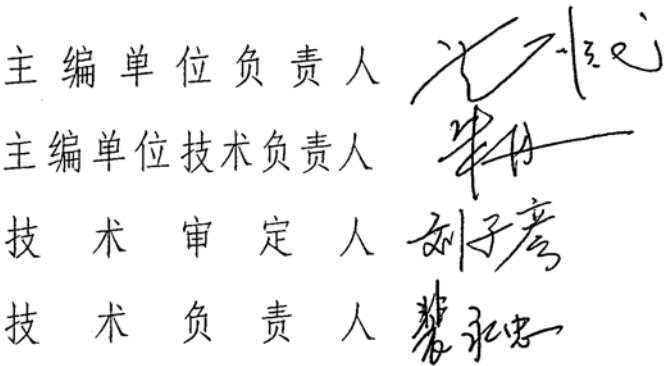 主编单位负责人
主编单位技术负责人
技术审定人 刘子彦
技术负责人 裴永忠